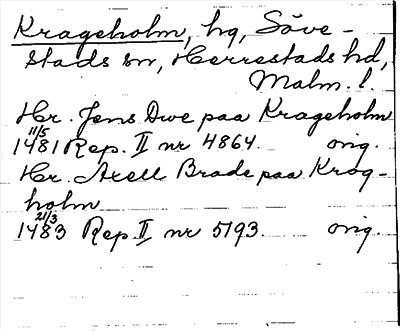 Krageholm, hg, Söve-
stads sn, Herrestads hd,
Malm. l.
Hr. Jens Dwe paa Krageholm
1481 11/5 Rep. II nr 4864. orig.
Hr. Axell Brade paa Krog-
holm
1483 21/3 Rep. II nr 5193. orig.